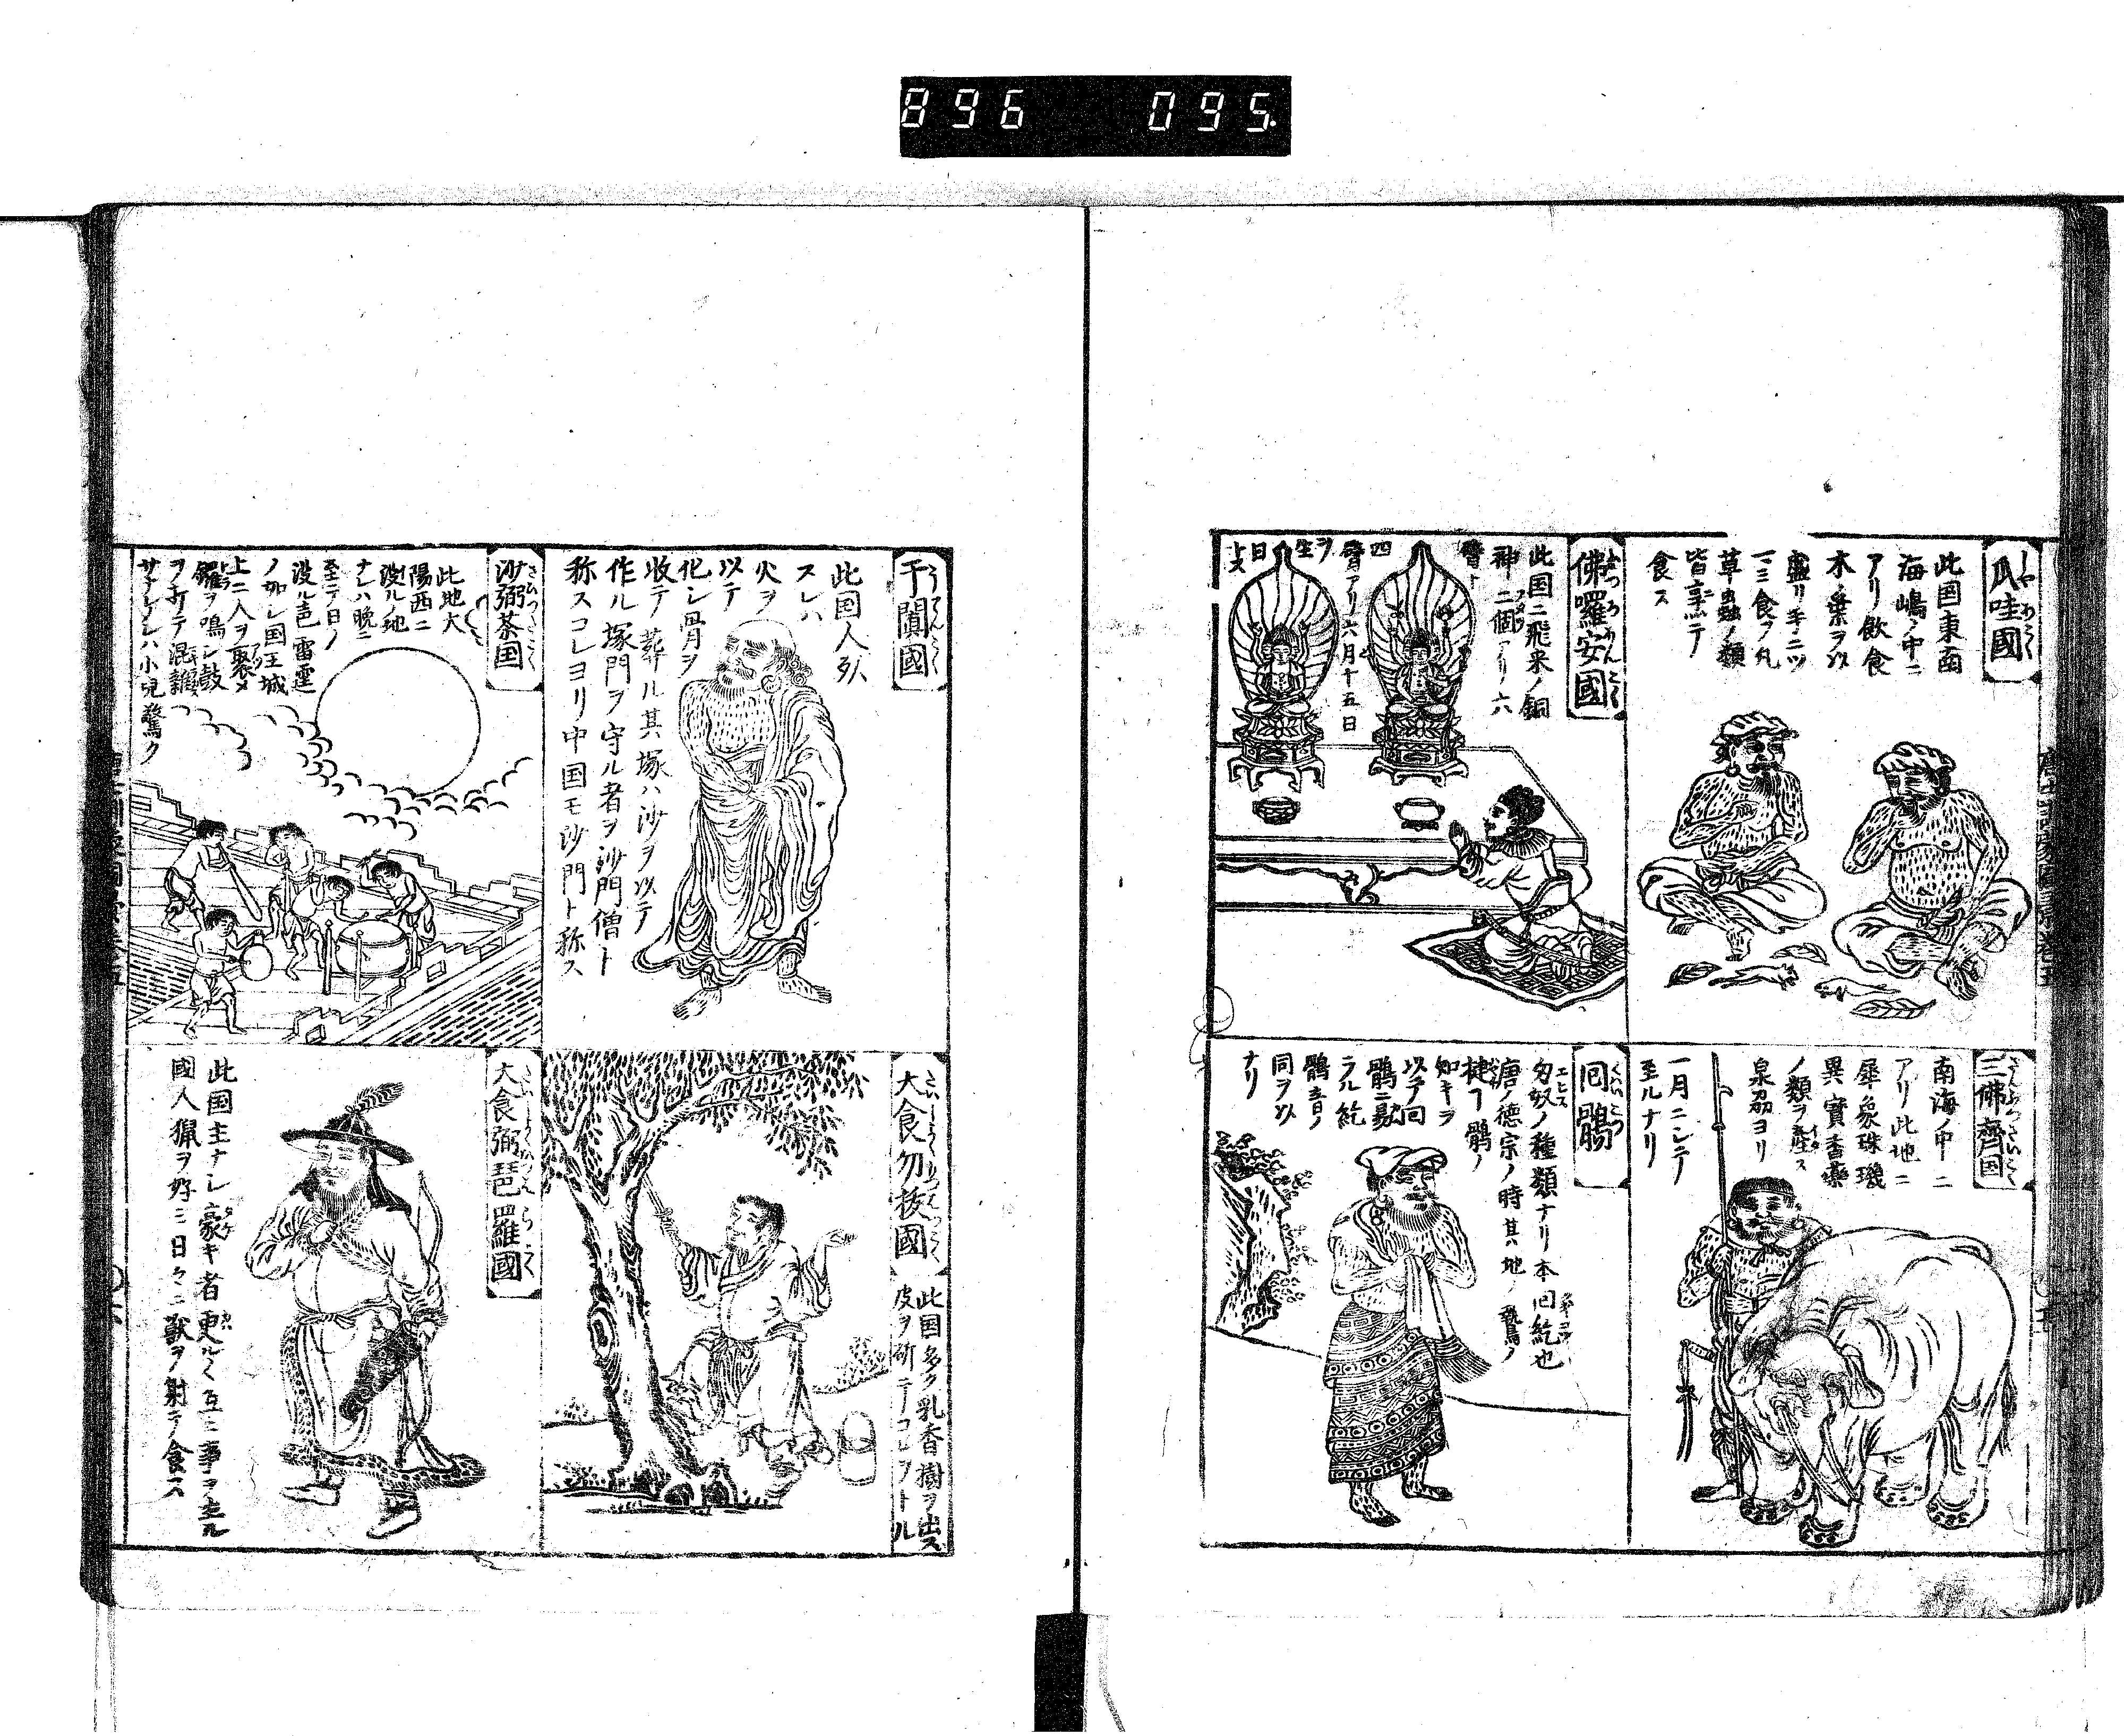 896 095
爪哇國
此国東南
海嶋ノ中ニ
アリ飲食
木ノ葉ヲ以
盛リ手ニツ
草虫ノ類
食ス
佛囉安國
此国ニ飛来ノ銅
神二個アリ六
臂ト
四
臂アリ六月十五日
ヲ生
日
トス
三佛齊国
南海ノ中ニ
アリ此地ニ
犀象珠璣
異寶香藥
ノ類ヲ產ス
泉刕ヨリ
一月ニシテ
至ルナリ
回鶻
匈奴ノ種類ナリ本回紇也
唐ノ德宗ノ時其ノ地ノ鷙ノ
捷フ鶻ノ
如キヲ
以テ回
鶻ニ易
ラル紇
鶻音ノ
同ヲ以
ナリ
于闐國
此国人死
スレハ
火ヲ
以テ
化シ骨ヲ
收テ葬ル其塚ハ沙ヲ以テ
作ル塚門ヲ守ル者ヲ沙門僧ト
称スコレヨリ中国モ沙門ト称ス
大食勿拔國
此国多ク乳香樹ヲ出ス
皮ヲ斫テコレヲトル
沙弼茶国
此地大
陽西ニ
沒ルノ地
ナレハ晩ニ
至テ日ノ
沒ル声雷霆
ノ如シ国王城
上ニ人ヲ聚メ
鑼ヲ鳴シ鼓
ヲ打テ混雜
サナケレハ小児驚ク
大食弼琶羅國
此国主ナシ豪キ者更ル〱互ニ事ヲ主ル
國人猟ヲ好ミ日々ニ獣ヲ射テ食ス